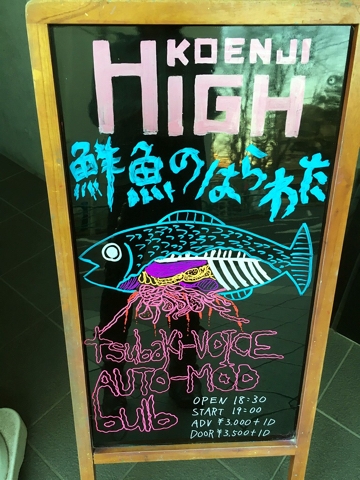 KOENJI
HIGH
鮮魚のはらわた
tsubaKi-VOICE
AUTO-MOD
bulb
OPEN 18:30
START 19:00
ADV ¥3.000+1D
DOOR ¥3.500+1D